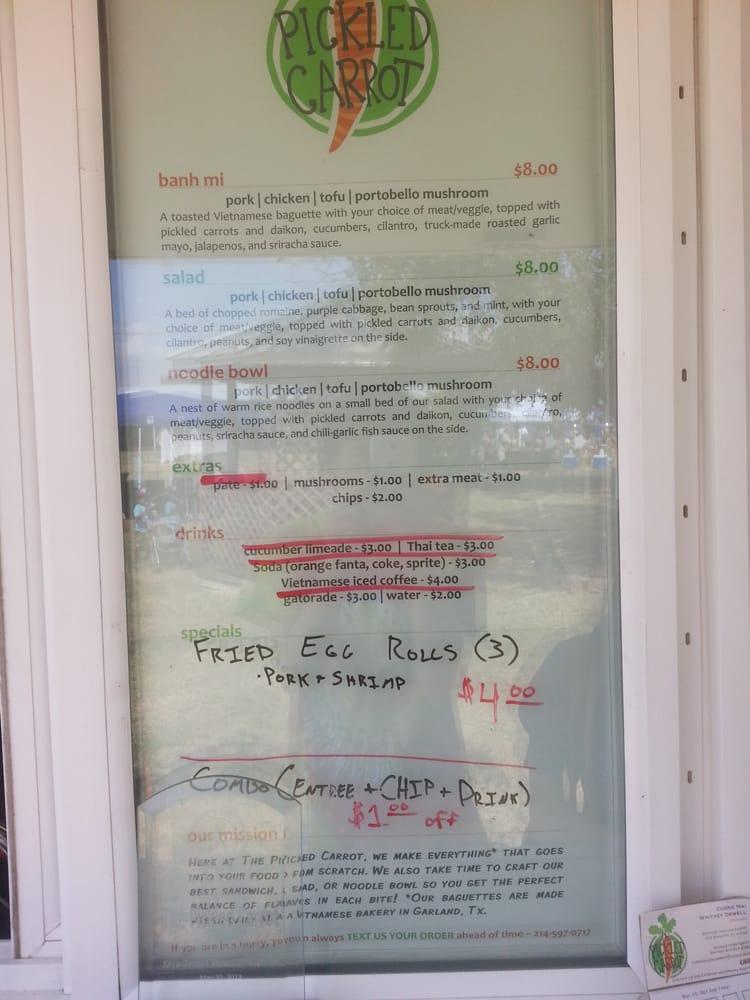 PICKLED
CARROT
banh mi $8.00
pork | chicken | tofu | portobello mushroom
A toasted Vietnamese baguette with your choice of meat/veggie, topped with
pickled carrots and daikon, cucumbers, cilantro, truck-made roasted garlic
mayo, jalapenos, and sriracha sauce.
salad $8.00
pork | chicken | tofu | portobello mushroom
A bed of chopped romaine, purple cabbage, bean sprouts, and mint, with your
choice of meat/veggie, topped with pickled carrots and daikon, cucumbers,
cilantro, peanuts, and soy vinaigrette on the side.
noodle bowl $8.00
pork | chicken | tofu | portobello mushroom
A nest of warm rice noodles on a small bed of our salad with your choice of
meat/veggie, topped with pickled carrots and daikon, cucumbers, cilantro,
peanuts, sriracha sauce, and chili-garlic fish sauce on the side.
extras
pate - $1.00 | mushrooms - $1.00 | extra meat - $1.00
chips - $2.00
drinks
cucumber limeade - $3.00 | Thai tea - $3.00
Soda (orange fanta, coke, sprite) - $3.00
Vietnamese iced coffee - $4.00
gatorade - $3.00 | water - $2.00
specials
FRIED EGG ROLLS (3)
· PORK + SHRIMP $4.00
COMBO (ENTREE + CHIP + DRINK)
$1.00 off
our mission
HERE AT THE PICKLED CARROT, WE MAKE EVERYTHING* THAT GOES
INTO YOUR FOOD FROM SCRATCH. WE ALSO TAKE TIME TO CRAFT OUR
BEST SANDWICH, SALAD, OR NOODLE BOWL SO YOU GET THE PERFECT
BALANCE OF FLAVORS IN EACH BITE! *OUR BAGUETTES ARE MADE
FRESH DAILY AT A VIETNAMESE BAKERY IN GARLAND, TX.
If you are in a hurry, you can always TEXT US YOUR ORDER ahead of time – 214-597-0717